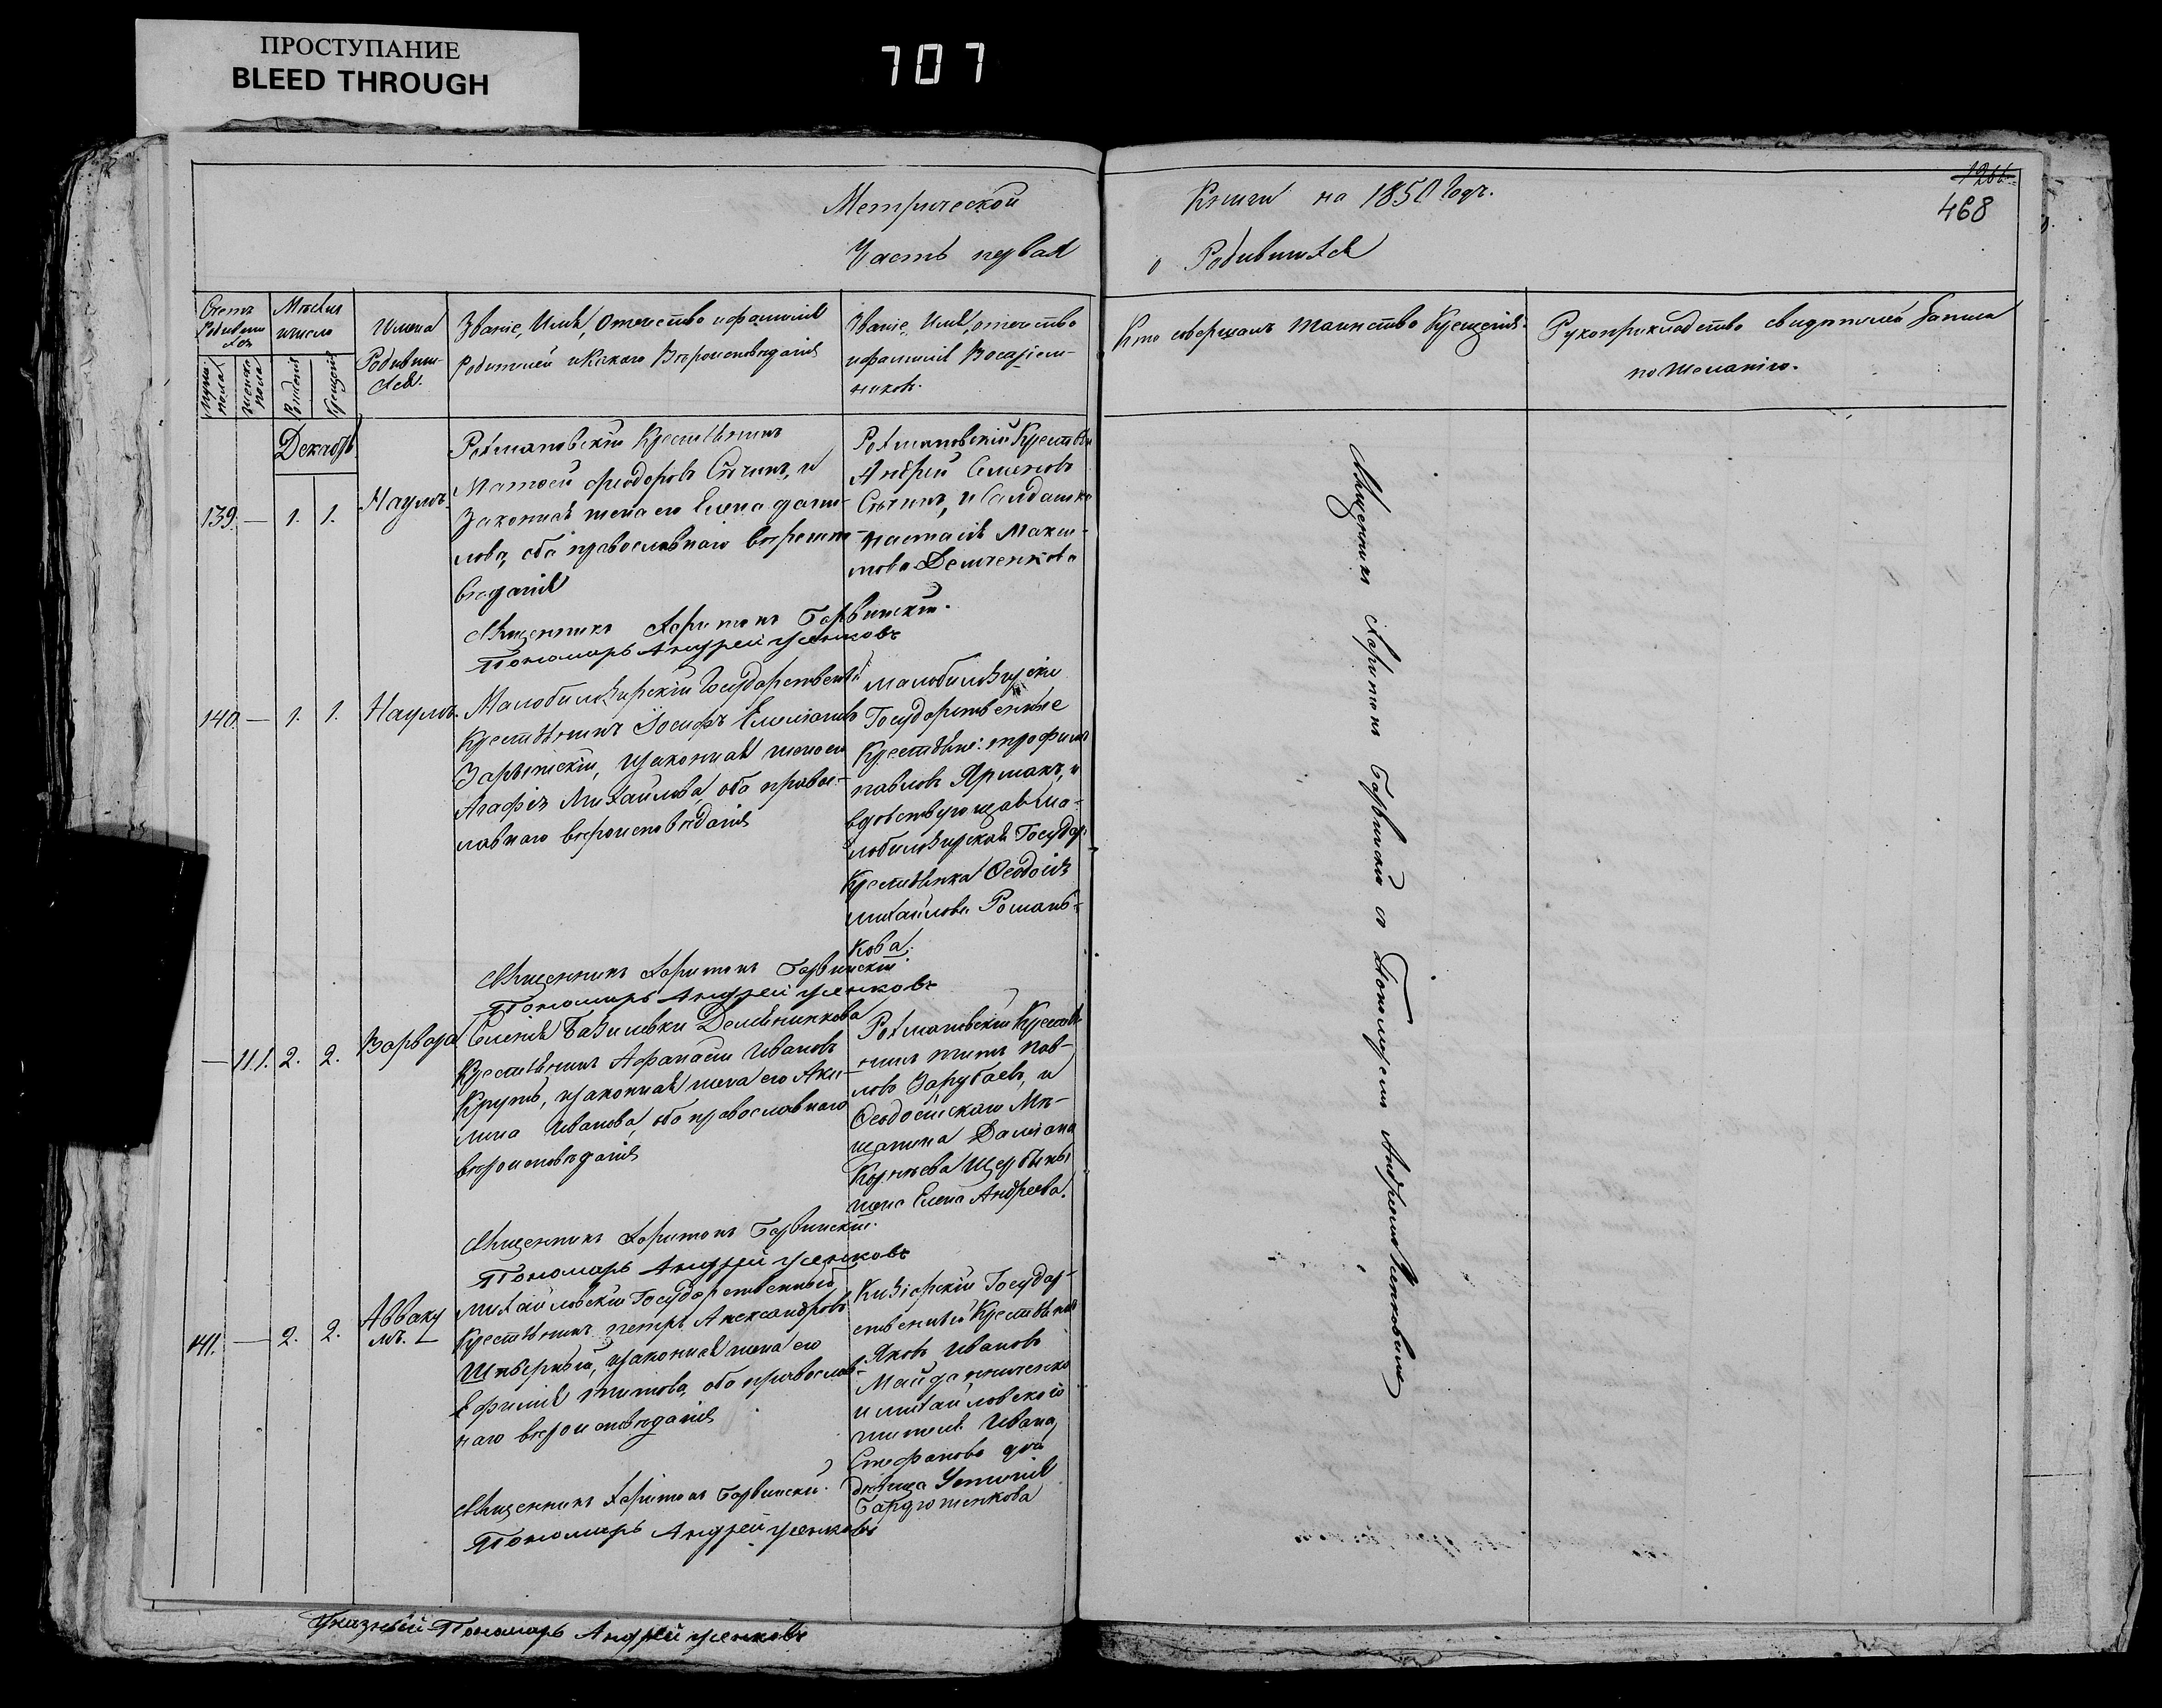 ПРОСТУПАНИЕ
BLEED THROUGH
707
Метрической
Книги на 1850 Годъ.
1266
468
Часть первая
о Родившихся
Счетъ Родившихся
Мужеска пола
Женска пола
Мѣсяцъ и число
Рожденія
Крещенія
Имена
Родивших-
ся.
Званіе, Имя, Отечество и фамилія
Родителей и какого Вѣроисповѣданія
Званіе, Имя, отечество
и фамилія Воспріем-
никовъ.
Кто совершалъ таинство Крещенія.
Рукоприкладство свидѣтелей записи
по желанію.
Декабрь
139. — 1. 1. Наумъ.
Рохмановскій Крестьянинъ
Матвѣй Феодоровъ Сычинъ, и
Законная жена его Елена Дани-
лова, оба православнаго вѣроиспо-
вѣданія
Рохмановскій Крестьян
Андрей Семеновъ
Сычинъ, и Салдатка
Наталія Макси-
мова Демченкова
Священникъ Харитонъ Барвинскій.
Пономарь Андрей Усенковъ
140. — 1. 1. Наумъ.
Малобилозирскій Государственный
Крестьянинъ Іосифъ Емеліановъ
Зарѣтскій, и законная жена его
Агафія Михайлова, оба правос-
лавнаго вѣроисповѣданія
Малобилозирскіи
Государственные
Крестьяне: Трофимъ
Павловъ Ярмакъ, и
вдовствующая Ма-
лобилозирская Государ:
Крестьянка Феодосія
Михайлова Романь-
кова.
Священникъ Харитонъ Барвинскій.
Пономарь Андрей Усенковъ
— 111. 2. 2. Варвара
Селенія Базилевки
Крестьянинъ Афанасій Ивановъ
Крутъ, и законная жена его Аку-
лина Иванова, оба православнаго
вѣроисповѣданія
Рохмановскій Крестья-
нинъ Титъ Пав-
ловъ Зарубаевъ, и
Феодосійскаго Мѣ-
щанина Даміана
Корнѣева Щербины
жена Елена Андреева.
Священникъ Харитонъ Барвинскій.
Пономарь Андрей Усенковъ
141. — 2. 2. Авваку
мъ.
Михайловскій Государственный
Крестьянинъ Петръ Александровъ
законная жена его
Ефимія Титова, оба православ-
наго вѣроисповѣданія
Государ-
ственный Крестьянинъ
Яковъ Ивановъ
Майданниченко
и Михайловскаго
жителя Ивана
Стефанова дочь
дѣвица
Бандюженкова
Священникъ Харитонъ Барвинскій.
Пономарь Андрей Усенковъ
Указный Пономарь Андрей Усенковъ
Священникъ Харитонъ Барвинскій съ Пономаремъ Андреемъ Усенковымъ